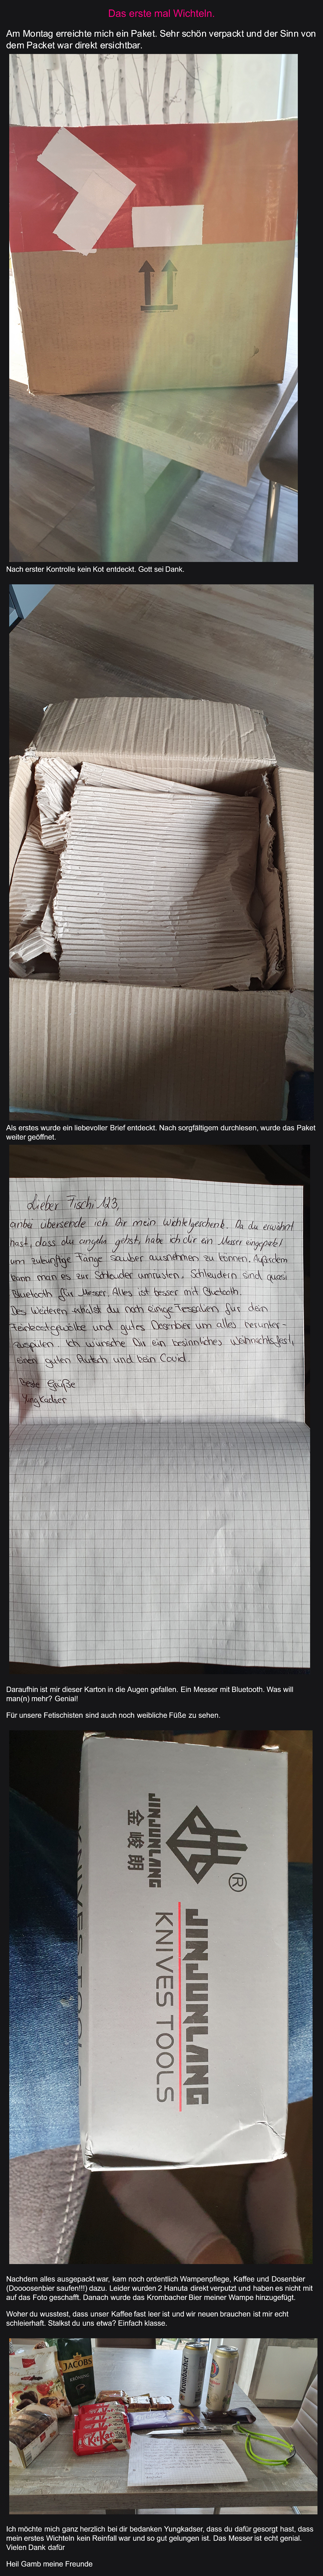 Das erste mal Wichteln.
Am Montag erreichte mich ein Paket. Sehr schön verpackt und der Sinn von
dem Packet war direkt ersichtbar.
Nach erster Kontrolle kein Kot entdeckt. Gott sei Dank.
Als erstes wurde ein liebevoller Brief entdeckt. Nach sorgfältigem durchlesen, wurde das Paket
weiter geöffnet.
Lieber Fischi123,
anbei übersende ich Dir mein Wichtelgeschenk. Da du erwähnt
hast, dass du angeln gehst, habe ich dir ein Messer eingepackt
um zukünftige Fänge sauber ausnehmen zu können. Außerdem
kann man es zur Schleuder umrüsten. Schleudern sind quasi
Bluetooth für Messer. Alles ist besser mit Bluetooth.
Des Weiteren erhälst du noch einige Fressalien für dein
Feinkostgewölbe und gutes Dosenbier um alles herunter-
zuspülen. Ich wünsche Dir ein besinnliches Weihnachtsfest,
einen guten Rutsch und kein Covid.
Beste Grüße
YungKadser
Daraufhin ist mir dieser Karton in die Augen gefallen. Ein Messer mit Bluetooth. Was will
man(n) mehr? Genial!
Für unsere Fetischisten sind auch noch weibliche Füße zu sehen.
®
JINJUNLANG
KNIVES TOOLS
JINJUNLANG
金峻朗
Nachdem alles ausgepackt war, kam noch ordentlich Wampenpflege, Kaffee und Dosenbier
(Doooosenbier saufen!!!) dazu. Leider wurden 2 Hanuta direkt verputzt und haben es nicht mit
auf das Foto geschafft. Danach wurde das Krombacher Bier meiner Wampe hinzugefügt.
Woher du wusstest, dass unser Kaffee fast leer ist und wir neuen brauchen ist mir echt
schleierhaft. Stalkst du uns etwa? Einfach klasse.
JACOBS
KRÖNUNG
KitKat
Krombacher
Ich möchte mich ganz herzlich bei dir bedanken Yungkadser, dass du dafür gesorgt hast, dass
mein erstes Wichteln kein Reinfall war und so gut gelungen ist. Das Messer ist echt genial.
Vielen Dank dafür
Heil Gamb meine Freunde